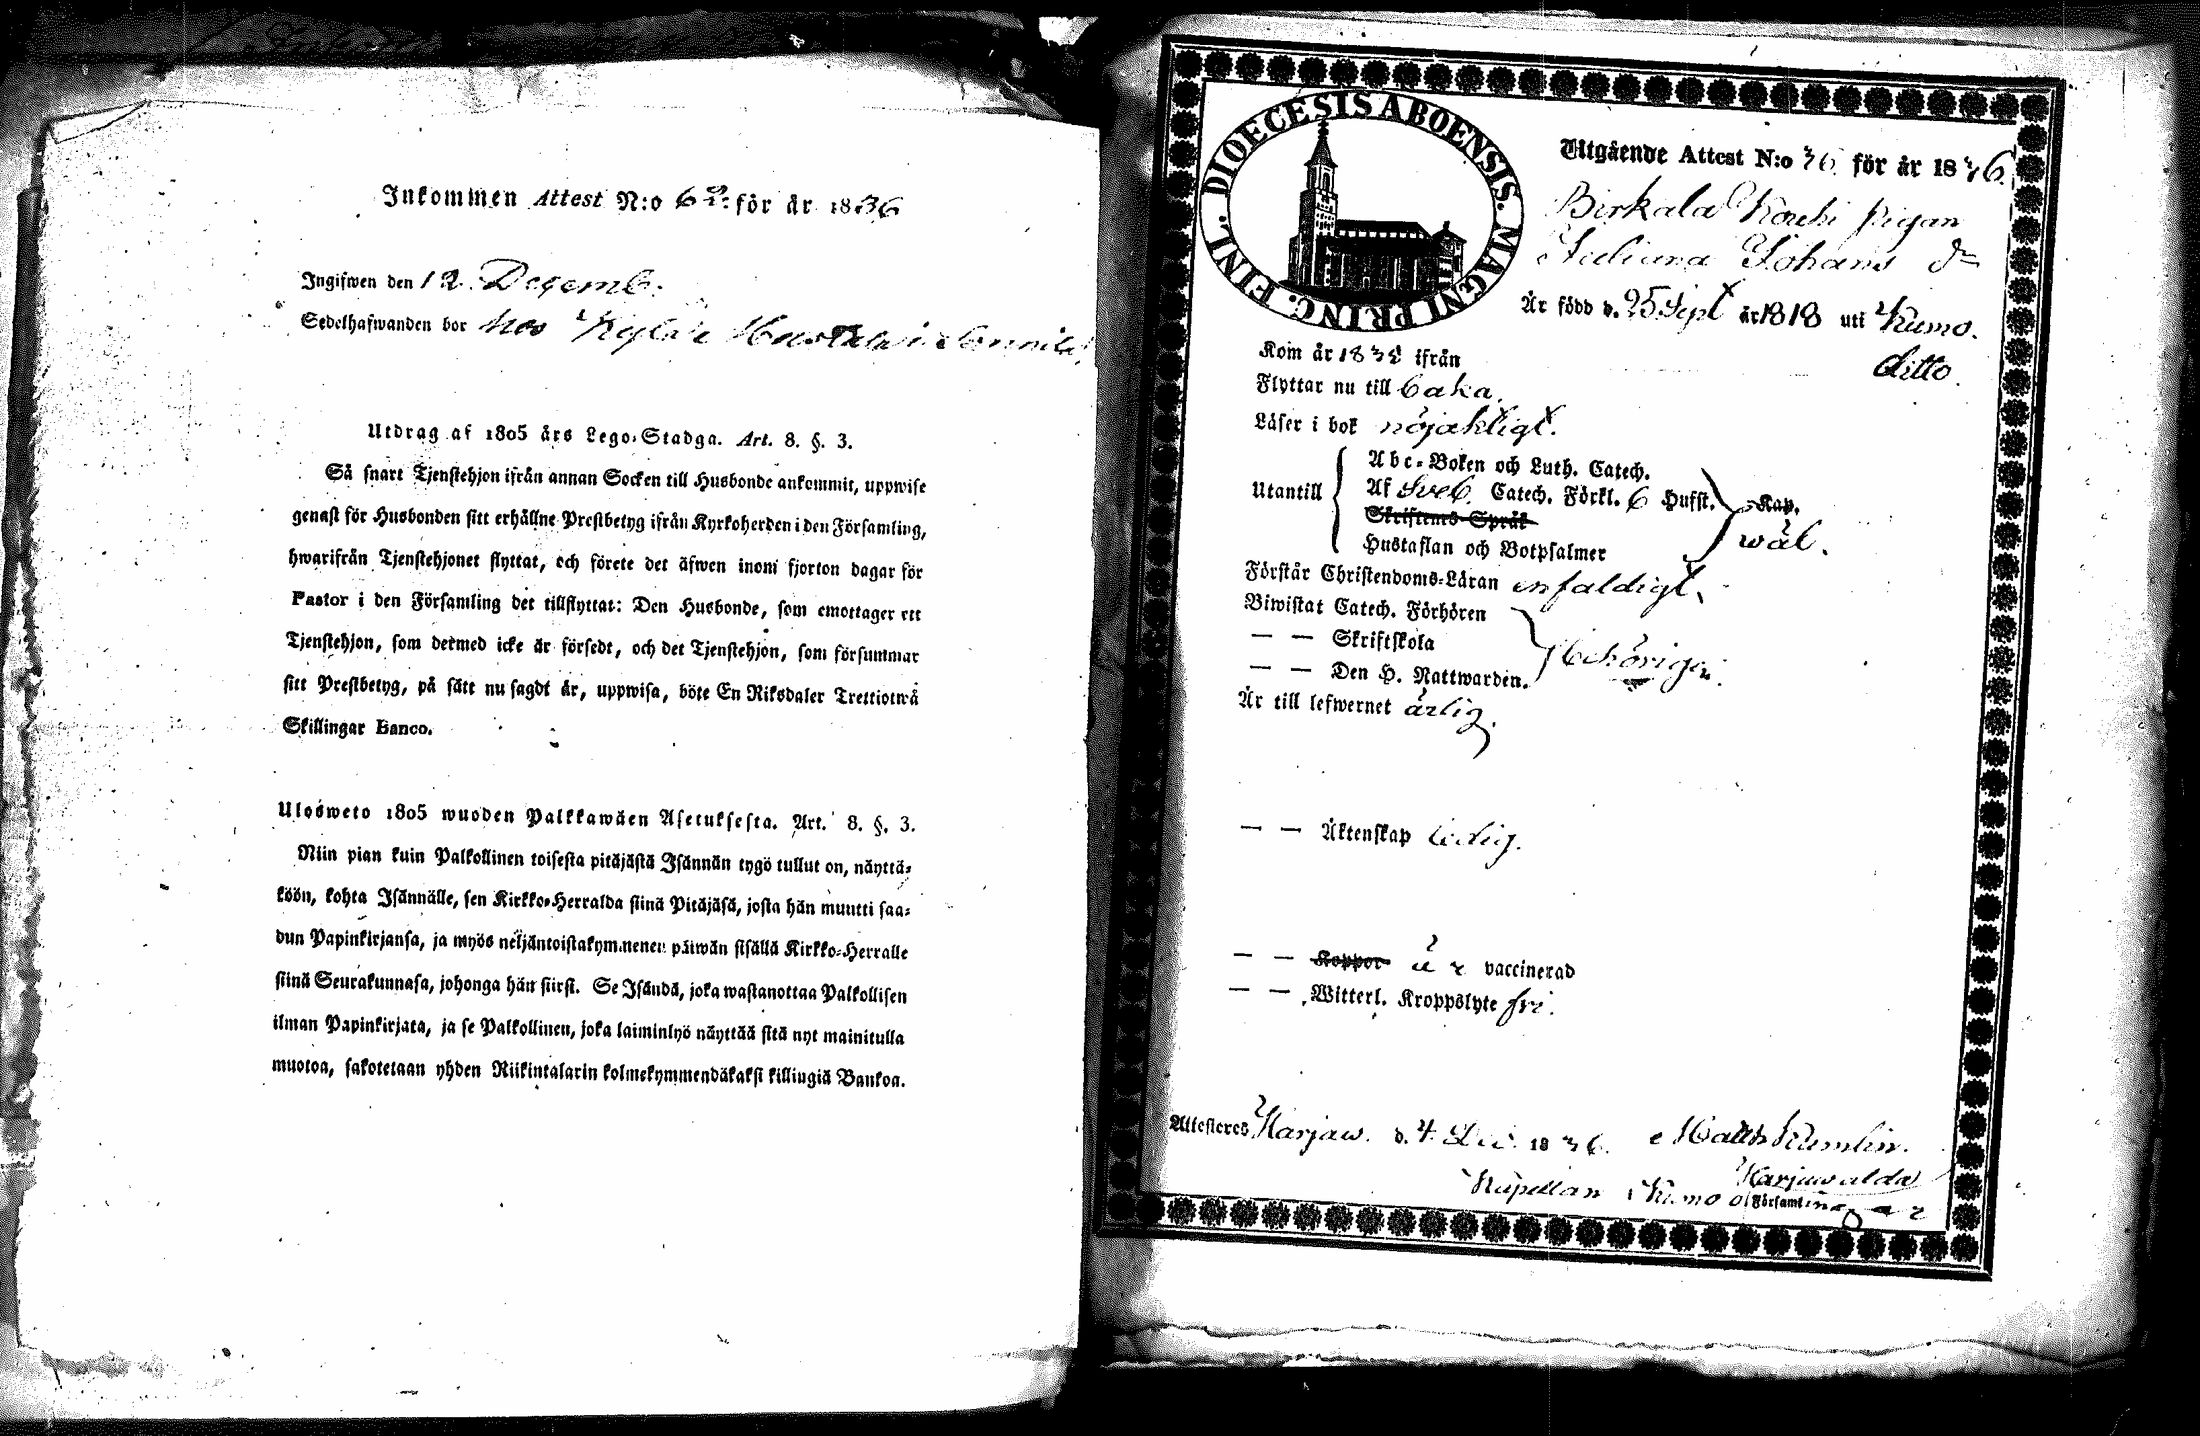 Inkommen Attest N:o 62. för år 1836
Ingifwen den 12 Decemb.
Sedelhafwanden bor hos
Utdrag af 1805 års Lego-Stadga. Art. 8. §. 3.
Så snart Tjenstehjon ifrån annan Socken till Husbonde ankommit, uppwise
genast för Husbonden sitt erhållne Prestbetyg ifrån Kyrkoherden i den Församling,
hwarifrån Tjenstehjonet flyttat, och förete det äfwen inom fjorton dagar för
Pastor i den Församling det tillflyttat: Den Husbonde, som emottager ett
Tjenstehjon, som dermed icke är försedt, och det Tjenstehjon, som försummar
sitt Prestbetyg, på sätt nu sagdt är, uppwisa, böte En Riksdaler Trettiotwå
Skillingar Banco.
Ulosweto 1805 wuoden Palkkawäen Asetuksesta. Art. 8. §. 3.
Niin pian kuin Palkollinen toisesta pitäjästä Isännän tygö tullut on, näyttä-
köön, kohta Isännälle, sen Kirkko-Herralda siinä Pitäjäsä, josta hän muutti saa-
dun Papinkirjansa, ja myös neljäntoistakymmenen päiwän sisällä Kirkko-Herralle
siinä Seurakunnasa, johonga hän siirsi. Se Isändä, joka wastanottaa Palkollisen
ilman Papinkirjata, ja se Palkollinen, joka laiminlyö näyttää sitä nyt mainitulla
muotoa, sakotetaan yhden Riikintalarin kolmekymmendäkaksi killingiä Bankoa.
DIOECESIS ABOENSIS. MAGNI PRINC. FINL.
Utgående Attest N:o 76 för år 1836.
Birkala Kouhi pigan
Juliana Johans dr
Är född d. 25 Sept år 1818 uti Kumo.
Kom år 1835 ifrån ditto.
Flyttar nu till
Läser i bok nöjaktigt.
Utantill
Abc-Boken och Luth. Catech.
Af Sveb. Catech. Förkl. 6 Hufst. Kap.
Skriftenes Språk
Hustaflan och Botpsalmer
wäl.
Förstår Christendoms-Läran enfaldigt.
Biwistat Catech. Förhören
— — Skriftskola
— — Den H. Nattwarden.
behörigen.
Är till lefwernet ärlig.
— — Äktenskap ledig.
— — Koppor är vaccinerad
— — Witterl. Kroppslyte fri.
Attesteres Harjaw. d. 4 Dec. 1836. Matth Kumlin.
Kapellan i Kumo o Harjawalda
Församlingar